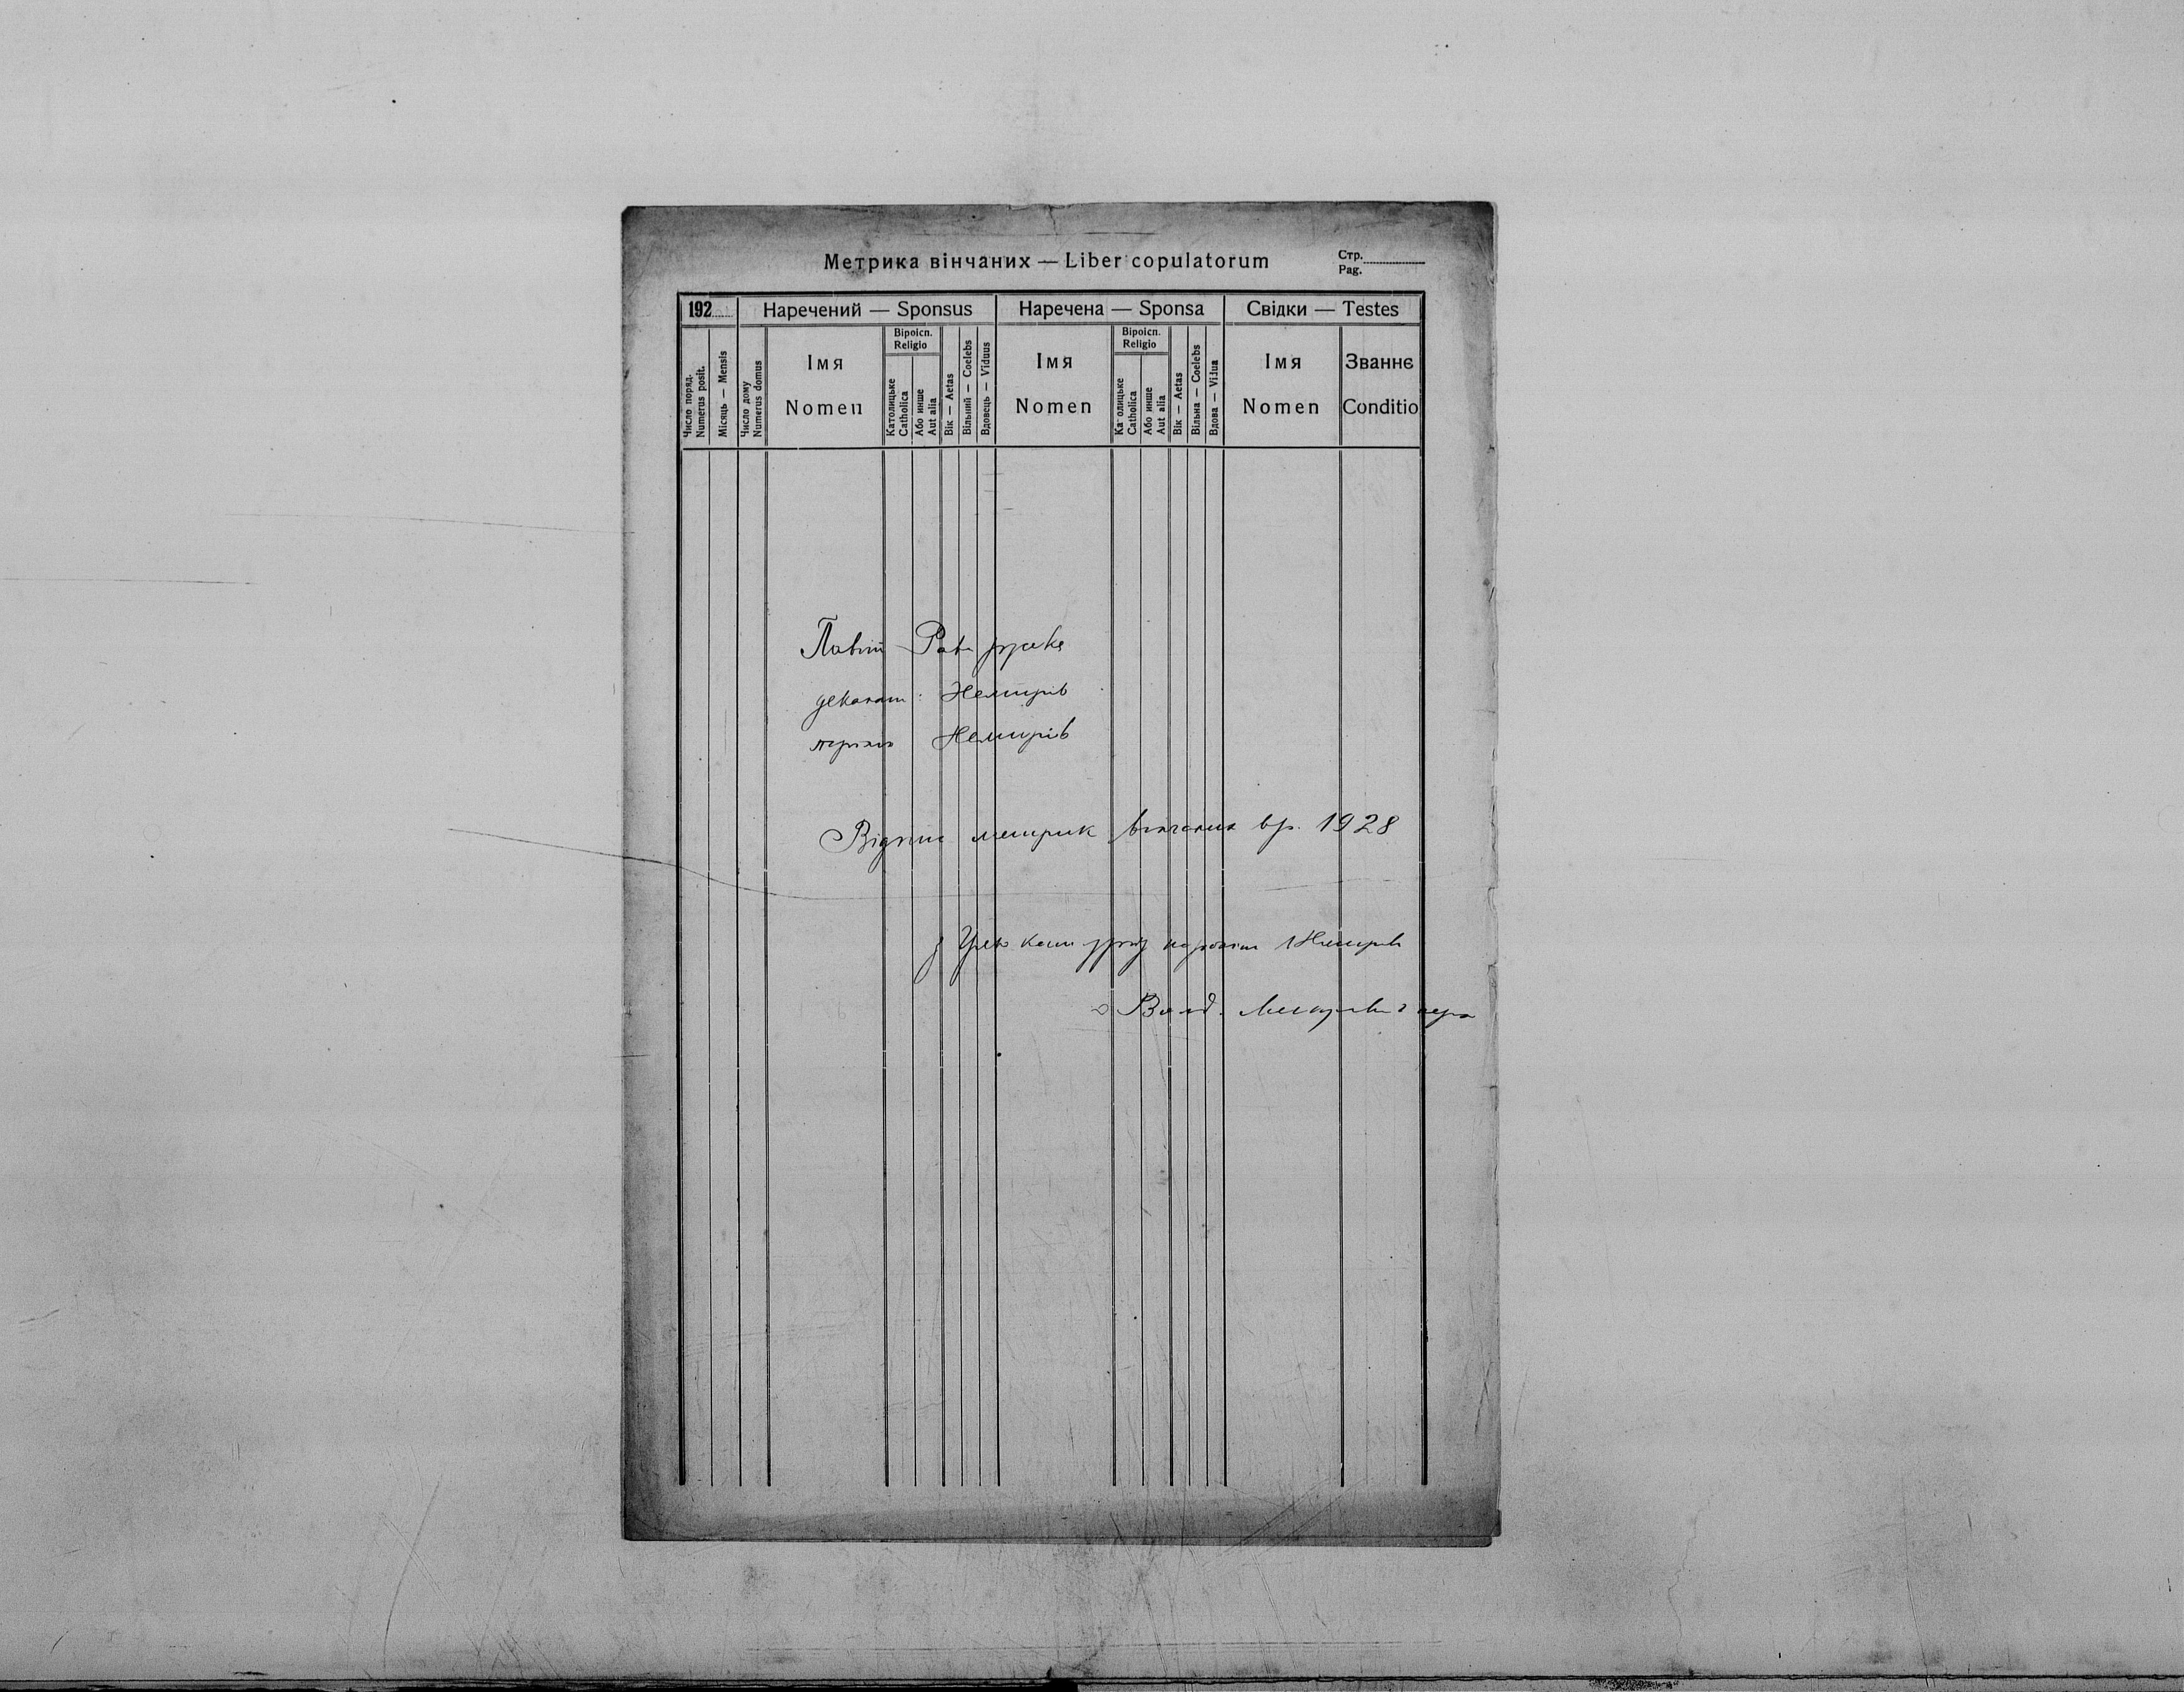 Метрика вінчаних — Liber copulatorum
Стр.
Pag.
192
Наречений — Sponsus
Наречена — Sponsa
Свідки — Testes
Число поряд.
Numerus posit.
Місяць — Mensis
Число дому
Numerus domus
Імя
Nomen
Віроісп.
Religio
Католицьке
Catholica
Або инше
Aut alia
Вік — Aetas
Вільний — Coelebs
Вдовець — Viduus
Імя
Nomen
Віроісп.
Religio
Ка олицьке
Catholica
Або инше
Aut alia
Вік — Aetas
Вільна — Coelebs
Вдова — Vidua
Імя
Nomen
Званнє
Conditio
Повіт Рава руска
деканат: Немирів
Немирів
Відпис метрик вінчаних вр. 1928
кат уряд Немирів
Волод.